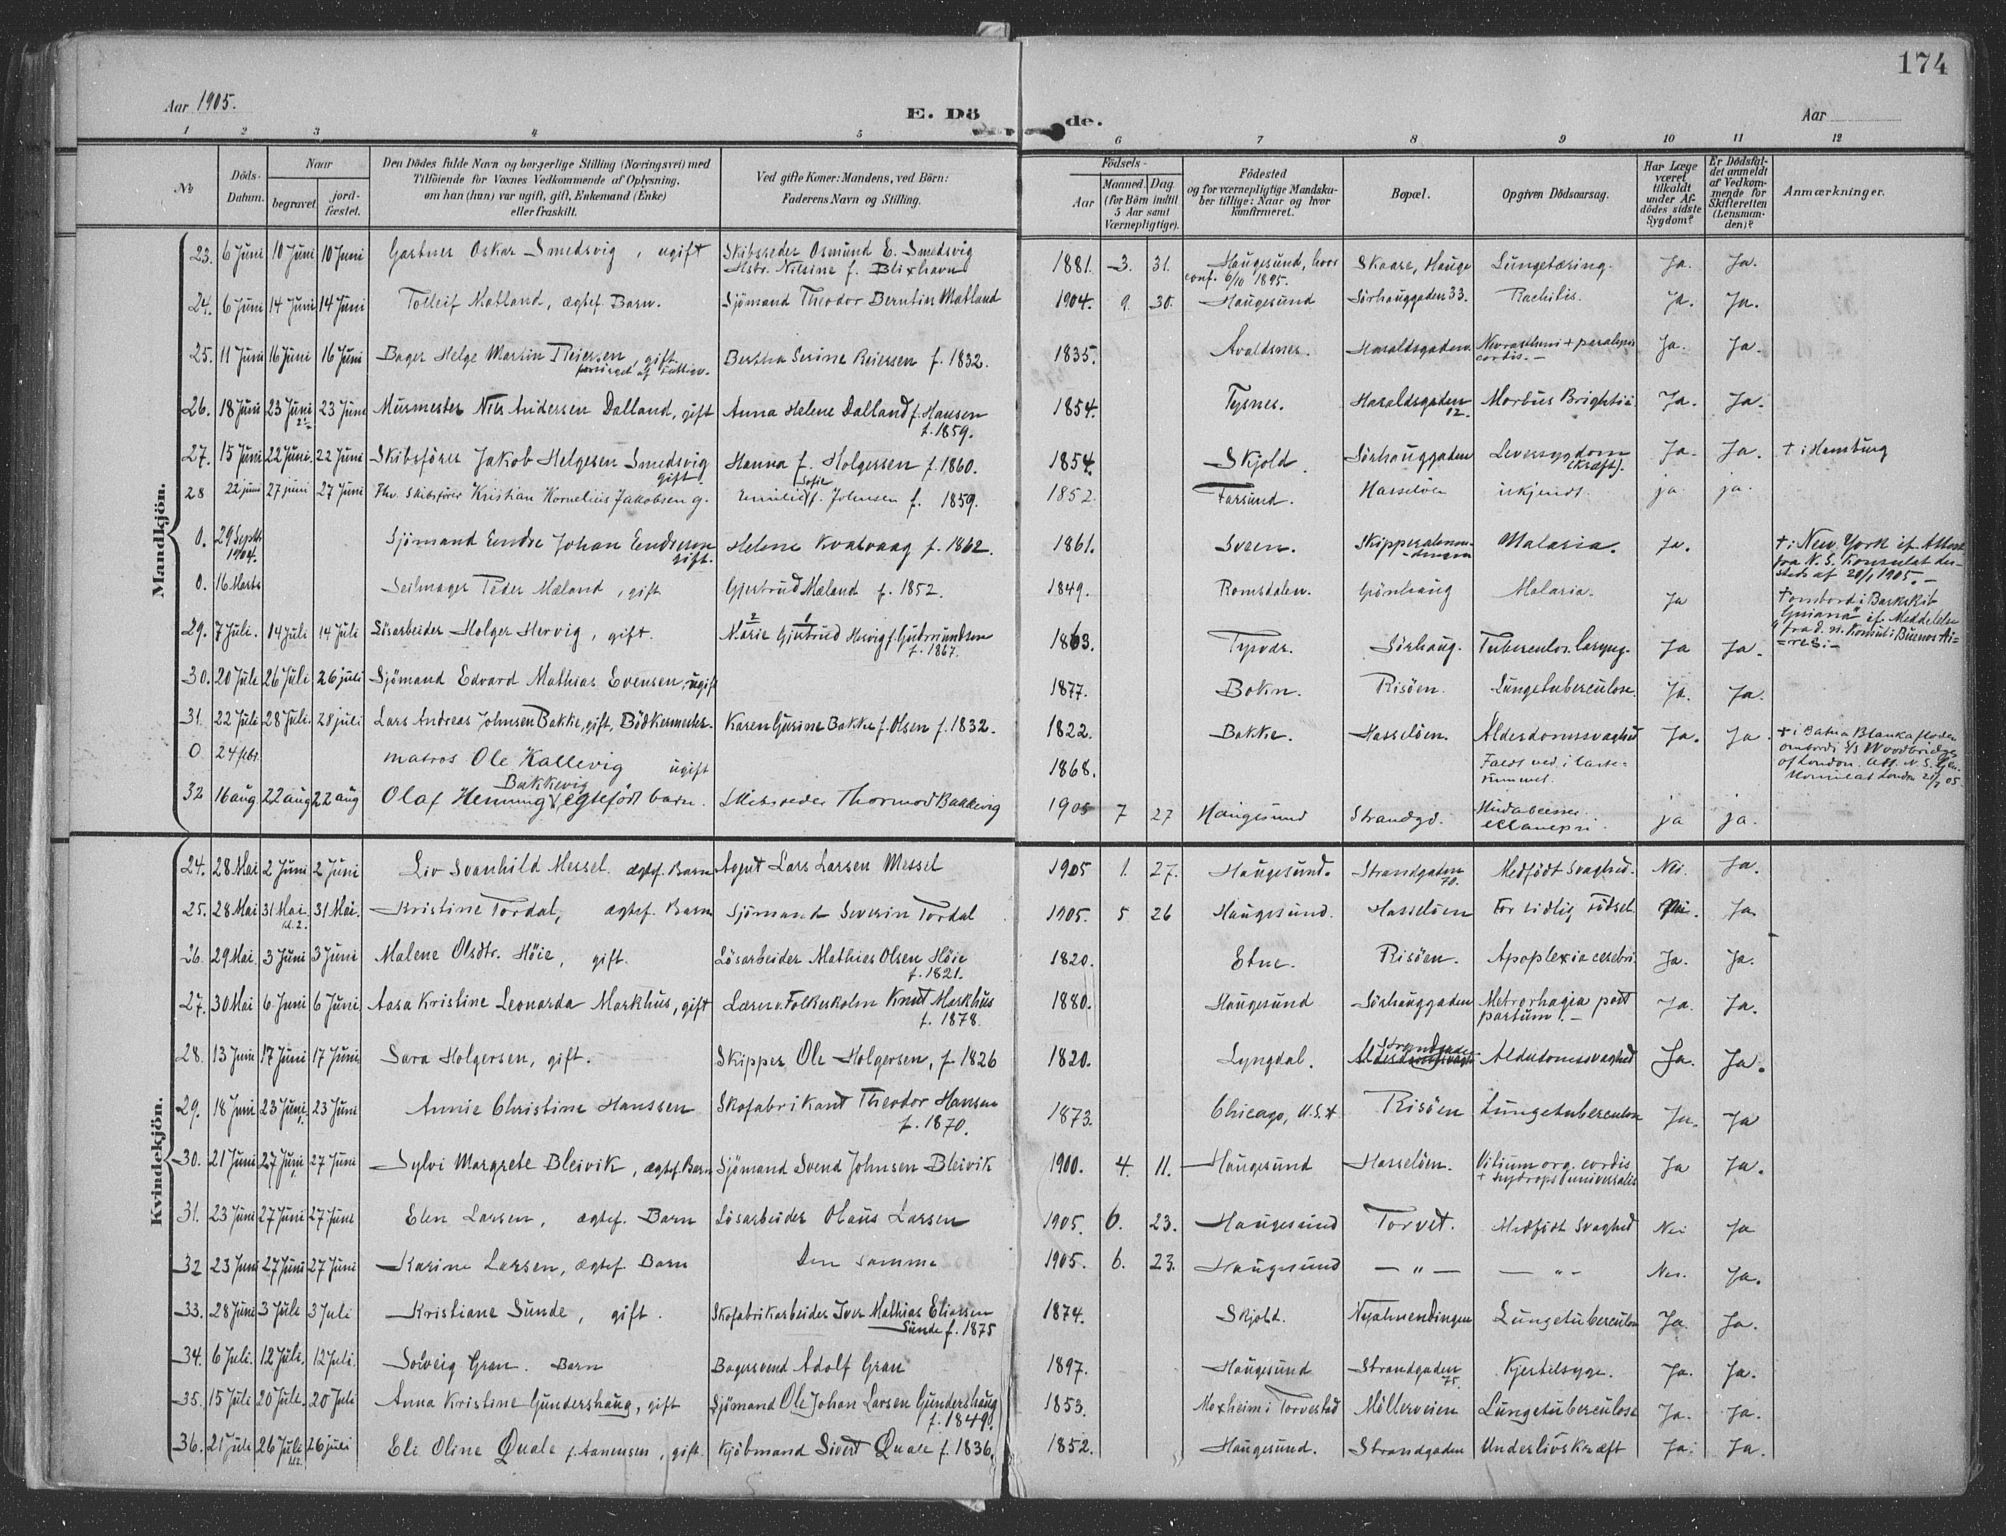 174
Aar 1905.
E. Dö de.
Aar
1 2 3 4 5 6 7 8 9 10 11 12
No
Döds-Datum.
Naar begravet. jord-fæstet.
Den Dödes fulde Navn og borgerlige Stilling (Næringsvei) med Tilföiende for Voxnes Vedkommende af Oplysning, om han (hun) var ugift, gift, Enkemand (Enke) eller fraskilt.
Ved gifte Koner: Mandens, ved Börn: Faderens Navn og Stilling.
Födsels-
Aar
Maaned. Dag. (for Börn indtil 5 Aar samt Værnepligtige).
Födested og for værnepligtige Mandskaber tillige: Naar og hvor konfirmeret.
Bopæl.
Opgiven Dödsaarsag.
Har Læge været tilkaldt under Afdödes sidste Sygdom?
Er Dödsfaldet anmeldt af Vedkommende for Skifteretten (Lensmanden)?
Anmærkninger.
Mandkjön.
23. 6 Juni 10 Juni 10 Juni Gartner Oskar Smedsvig, ugift Skibsreder Osmund E. Smedsvig Hstr. Nilsine f. Blixhavn 1881. 3. 31. Haugesund, hvor conf. 6/10 1895. Skaare, Hauge Lungetæring. Ja. Ja.
24. 6 Juni 14 Juni 14 Juni Tolleif Matland, ægtef. Barn. Sjömand Theodor Berntin Matland 1904. 9. 30. Haugesund Sörhauggaden 33. Rachitis. Ja. Ja.
25. 11 Juni 16 Juni 16 Juni Bager Helge Martin Reiersen, gift. forsörget af Fattigv. Bertha Serine Reiersen f. 1832. 1835. Avaldsnes. Haraldsgaden Nevrastheni + paralysis cordis. Ja. Ja.
26. 18 Juni 23 Juni 23 Juni Murmester Nils Andersen Dalland, gift Anna Helene Dalland f. Hansen f. 1859. 1854. Tysnes. Haraldsgaden 12. Morbus Brightii Ja. Ja.
27. 15 Juni 22 Juni. 22 Juni Skibsförer Jakob Helgesen Smedsvig gift Hanna f. Holgersen f. 1860. 1854. Skjold. Sörhauggaden Leversygdom (Kræft). Ja. Ja. + i Hamburg
28 22 juni 27 juni 27 Juni Fhv. Skibsförer Kristian Kornelius Jakobsen g. Emilie Sofie f. Johnsen f. 1859. 1852. Farsund. Hasselöen ukjendt. ja ja.
0. 29 Septbr 1904. Sjömand Endre Johan Endresen gift. Helene Kvalvaag f. 1862. 1861. Sveen. Malaria. Ja. + i New York if. Attest fra N. S. Konsulat dersteds af 20/1 1905.
0. 16 Marts Seilmager Peder Mæland, gift Gjertrud Mæland f. 1852. 1849. Romsdalen. Grönhaug Malaria. Ja + ombord i Barkskib "Gusiana" if. Meddelelse fra d. n. Konsul i Buenos Aires.
29. 7 Juli. 14 Juli 14 Juli Lösarbeider Holger Hervig, gift. Marie Gjertrud Hervig f. Gudmundsen f. 1867. 1863. Tysvær. Sörhaug. Tuberculos. laryng. Ja Ja.
30. 20 Juli 26 Juli 26 juli Sjömand Edvard Mathias Evensen, ugift 1877. Bokn. Risöen. Lungetuberculose. Ja. Ja.
31. 22 Juli 28 Juli. 28 juli Lars Andreas Johnsen Bakke, gift, Bödkermester. Karen Gurine Bakke f. Olsen f. 1832. 1822. Bakke. Hasselöen. Alderdomssvaghed Ja. Ja.
0 24 febr. matros Ole Kallevig ugift 1868. Faldt ned i lasterummet. + i Bahia Blanka floden ombord i S/S Woodbridge of London. Att. N. S. Gen. Konsulat London 21/7 05.
32 16 aug 22 aug 22 aug Olaf Henning Bakkevig egtefödt barn. Skibsreder Thormod Bakkevig 1905 7 27 Haugesund Strandgd. ja ja.
Kvindekjön.
24. 28 Mai 2 Juni 2 Juni Liv Svanhild Messel. ægtef. Barn Agent Lars Larsen Messel 1905 1. 27. Haugesund. Strandgaden 70. Medfödt Svaghed. Nei. Ja.
25. 28 Mai 31 Mai. 31 Mai. Kristine Tordal, ægtef. Barn Sjömand Severin Tordal 1905. 5. 26 Haugesund. Hasselöen For tidlig Födsel Nei. Ja
26. 29 Mai. 3 Juni 3 Juni Malene Olsdtr. Höie, gift. Lösarbeider Mathias Olsen Höie f. 1821. 1820. Etne. Risöen. Apoplexia cerebri. Ja. Ja.
27. 30 Mai 6 Juni 6 Juni Aasa Kristine Leonarda Markhus, gift Lærer v. Folkeskolen Knut Markhus f. 1878. 1880. Haugesund Sörhauggaden Metrorhagia post partum. Ja. Ja.
28. 13 Juni 17 Juni 17 Juni Sara Holgersen, gift. Skipper Ole Holgersen, f. 1826 1820. Lyngdal. Strandgaden Alderdomssvaghed Ja. Ja.
29. 18 Juni 23 Juni 23 Juni Annie Christine Hanssen Skofabrikant Theodor Hansen f. 1870. 1873. Chicago, U.S.A Risöen Lungetuberculose Ja. Ja
30. 21 Juni 27 Juni 27 Juni Sylvi Margrete Bleivik, ægtef. Barn Sjömand Svend Johnsen Bleivik 1900. 4. 11. Haugesund Hasselöen. Vitium org. cordis + hydrops universalis Ja Ja.
31. 23 Juni 27 Juni 27 Juni Elen Larsen, ægtef. Barn Lösarbeider Olaus Larsen 1905. 6. 23. Haugesund Torvet. Medfödt Svaghed Nei Ja
32 23 Juni 27 Juni 27 Juni Karine Larsen, ægtef. Barn Den samme 1905. 6. 23. Haugesund — " — — " — Nei. Ja.
33. 28 Juni 3 Juli 3 Juli Kristiane Sunde, gift. Skofabrikarbeider Iver Mathias Eliasen Sunde f. 1875 1874. Skjold. Nyalmendingen Lungetuberculose Ja. Ja.
34. 6 Juli. 12 Juli. 12 Juli. Solveig Gran. Barn Bagersvend Adolf Gran 1897. Haugesund Strandgaden 75. Kjertelsyge. Ja. Ja.
35. 15 Juli 20 Juli. 20 Juli Anna Kristine Gundershaug, gift Sjömand Ole Johan Larsen Gundershaug f. 1849. 1853. Moxheim i Torvestad Möllerveien Lungetuberculose Ja. Ja.
36. 21 Juli 26 Juli 26 juli Eli Oline Quale f. Aanensen, gift. Kjöbmand Sivert Quale f. 1836. 1852. Haugesund. Strandgaden Underlivskræft Ja. Ja.